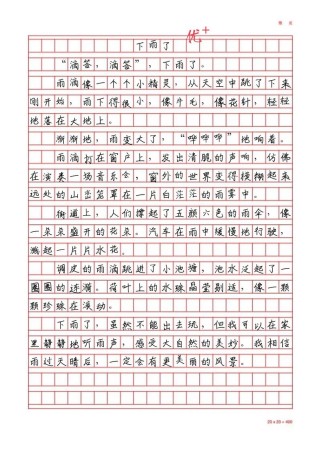 下雨了
优+
“滴答，滴答”，下雨了。
雨滴像一个个小精灵，从天空中跳了下来
刚开始，雨下得很小，像牛毛，像花针，轻轻
地落在大地上。
渐渐地，雨变大了，“哗哗哗”地响着。
雨滴打在窗户上，发出清脆的声响，仿佛
在演奏一场音乐会，窗外的世界变得模糊起来
远处的山峦笼罩在一片白茫茫的雨雾中。
街道上，人们撑起了五颜六色的雨伞，像
一朵朵盛开的花朵。汽车在雨中缓慢地行驶，
溅起一片片水花。
调皮的雨滴跳进了小池塘，池水泛起了一
圈圈的涟漪。荷叶上的水珠晶莹剔透，像一颗
颗珍珠在滚动。
下雨了，虽然不能出去玩，但我可以在家
里静静地听雨声，感受大自然的美妙。我相信
雨过天晴后，一定会有更美丽的风景。
20×20=400